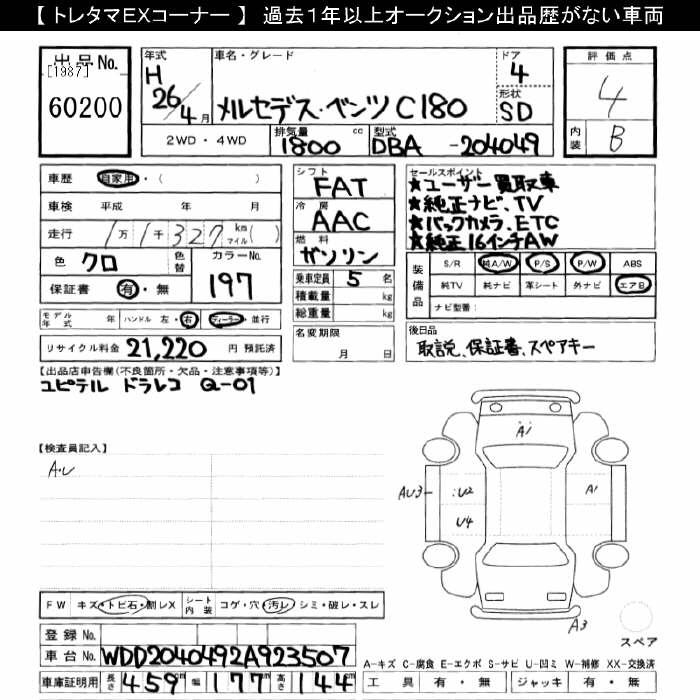 【 トレタマEXコーナー 】 過去1年以上オークション出品歴がない車両
出品No.
[1987]
60200
年式
H
26/4月
車名・グレード
メルセデス・ベンツ C180
ドア
4
形状
SD
2WD・4WD
排気量
1800 cc
型式
DBA -204049
評価点
4
内装
B
車歴 自家用・( )
車検 平成 年 月
走行 1万1千327 km マイル( )
色 クロ
色替
カラーNo.
197
保証書 有・無
モデル年式 年 ハンドル 左・右 ディーラー・並行
リサイクル料金 21,220 円 預託済
シフト
FAT
冷房
AAC
燃料
ガソリン
乗車定員 5 名
積載量 kg
総重量 kg
名変期限
月 日
セールスポイント
★ユーザー買取車
★純正ナビ、TV
★バックカメラ、ETC
★純正16インチAW
装備品
S/R 純A/W P/S P/W ABS
純TV 純ナビ 革シート 外ナビ エアB
ナビ型番:
後日品
取説、保証書、スペアキー
【出品店申告欄(不良箇所・欠品・注意事項等)】
ユピテル ドラレコ Q-01
【検査員記入】
A・U
A1
AU3
U2
U4
A1
A3
スペア
FW キズ・トビ石・割レX シート内装 コゲ・穴・汚レ・シミ・破レ・スレ
登録No.
車台No. WDD2040492A923507
車庫証明用 長さ 459 幅 177 高さ 144
A-キズ C-腐食 E-エクボ S-サビ U-凹ミ W-補修 XX-交換済
工具 有・無 ジャッキ 有・無